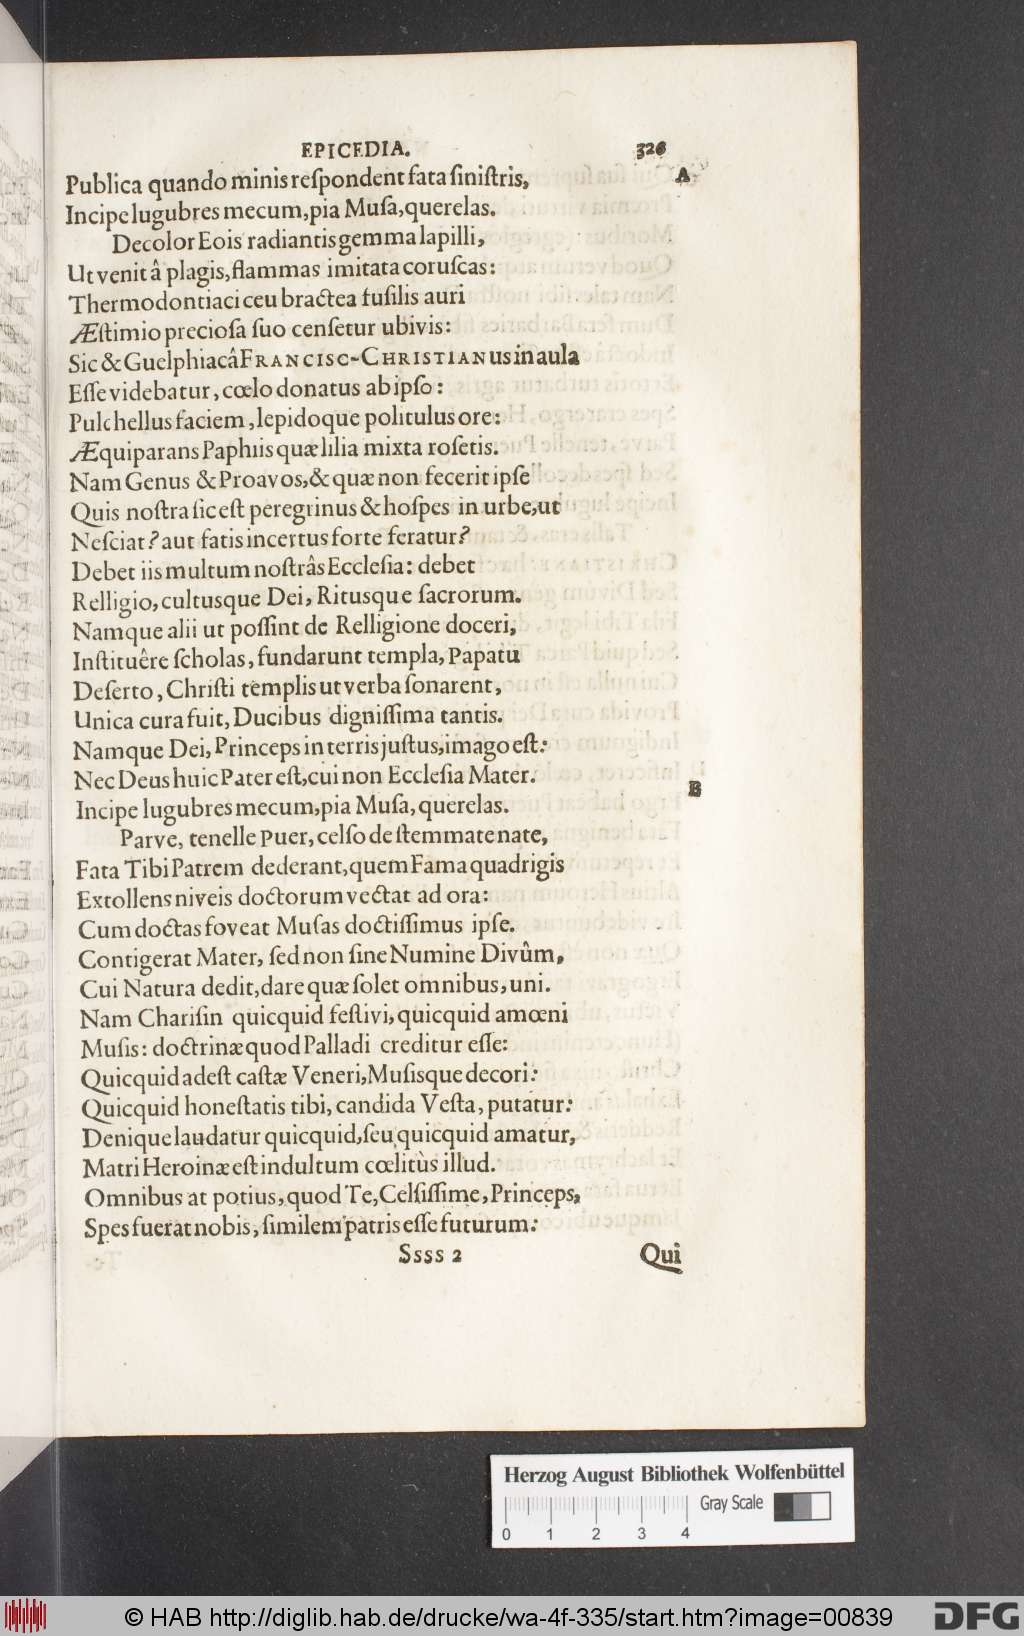 EPICEDIA. 326
Publica quando minis reſpondent fata ſiniſtris, A
Incipe lugubres mecum, pia Muſa, querelas.
Decolor Eois radiantis gemma lapilli,
Ut venit â plagis, flammas imitata coruſcas:
Thermodontiaci ceu bractea fuſilis auri
Æſtimio precioſa ſuo cenſetur ubivis:
Sic & Guelphiacâ FRANCISC-CHRISTIANus in aula
Eſſe videbatur, cœlo donatus ab ipſo:
Pulchellus faciem, lepidoque politulus ore:
Æquiparans Paphiis quæ lilia mixta roſetis.
Nam Genus & Proavos, & quæ non fecerit ipſe
Quis noſtra ſic eſt peregrinus & hoſpes in urbe, ut
Neſciat? aut fatis incertus forte feratur?
Debet iis multum noſtrâs Eccleſia: debet
Relligio, cultusque Dei, Ritusque ſacrorum.
Namque alii ut poſſint de Relligione doceri,
Inſtituêre ſcholas, fundarunt templa, Papatu
Deſerto, Chriſti templis ut verba ſonarent,
Unica cura fuit, Ducibus digniſſima tantis.
Namque Dei, Princeps in terris juſtus, imago eſt:
Nec Deus huic Pater eſt, cui non Eccleſia Mater.
B
Incipe lugubres mecum, pia Muſa, querelas.
Parve, tenelle Puer, celſo de ſtemmate nate,
Fata Tibi Patrem dederant, quem Fama quadrigis
Extollens niveis doctorum vectat ad ora:
Cum doctas foveat Muſas doctiſſimus ipſe.
Contigerat Mater, ſed non ſine Numine Divûm,
Cui Natura dedit, dare quæ ſolet omnibus, uni.
Nam Chariſin quicquid feſtivi, quicquid amœni
Muſis: doctrinæ quod Palladi creditur eſſe:
Quicquid adeſt caſtæ Veneri, Muſisque decori:
Quicquid honeſtatis tibi, candida Veſta, putatur:
Denique laudatur quicquid, ſeu quicquid amatur,
Matri Heroinæ eſt indultum cœlitùs illud.
Omnibus at potius, quod Te, Celſiſſime, Princeps,
Spes fuerat nobis, ſimilem patris eſſe futurum:
Ssss 2 Qui
Herzog August Bibliothek Wolfenbüttel
Gray Scale
0 1 2 3 4
© HAB http://diglib.hab.de/drucke/wa-4f-335/start.htm?image=00839 DFG